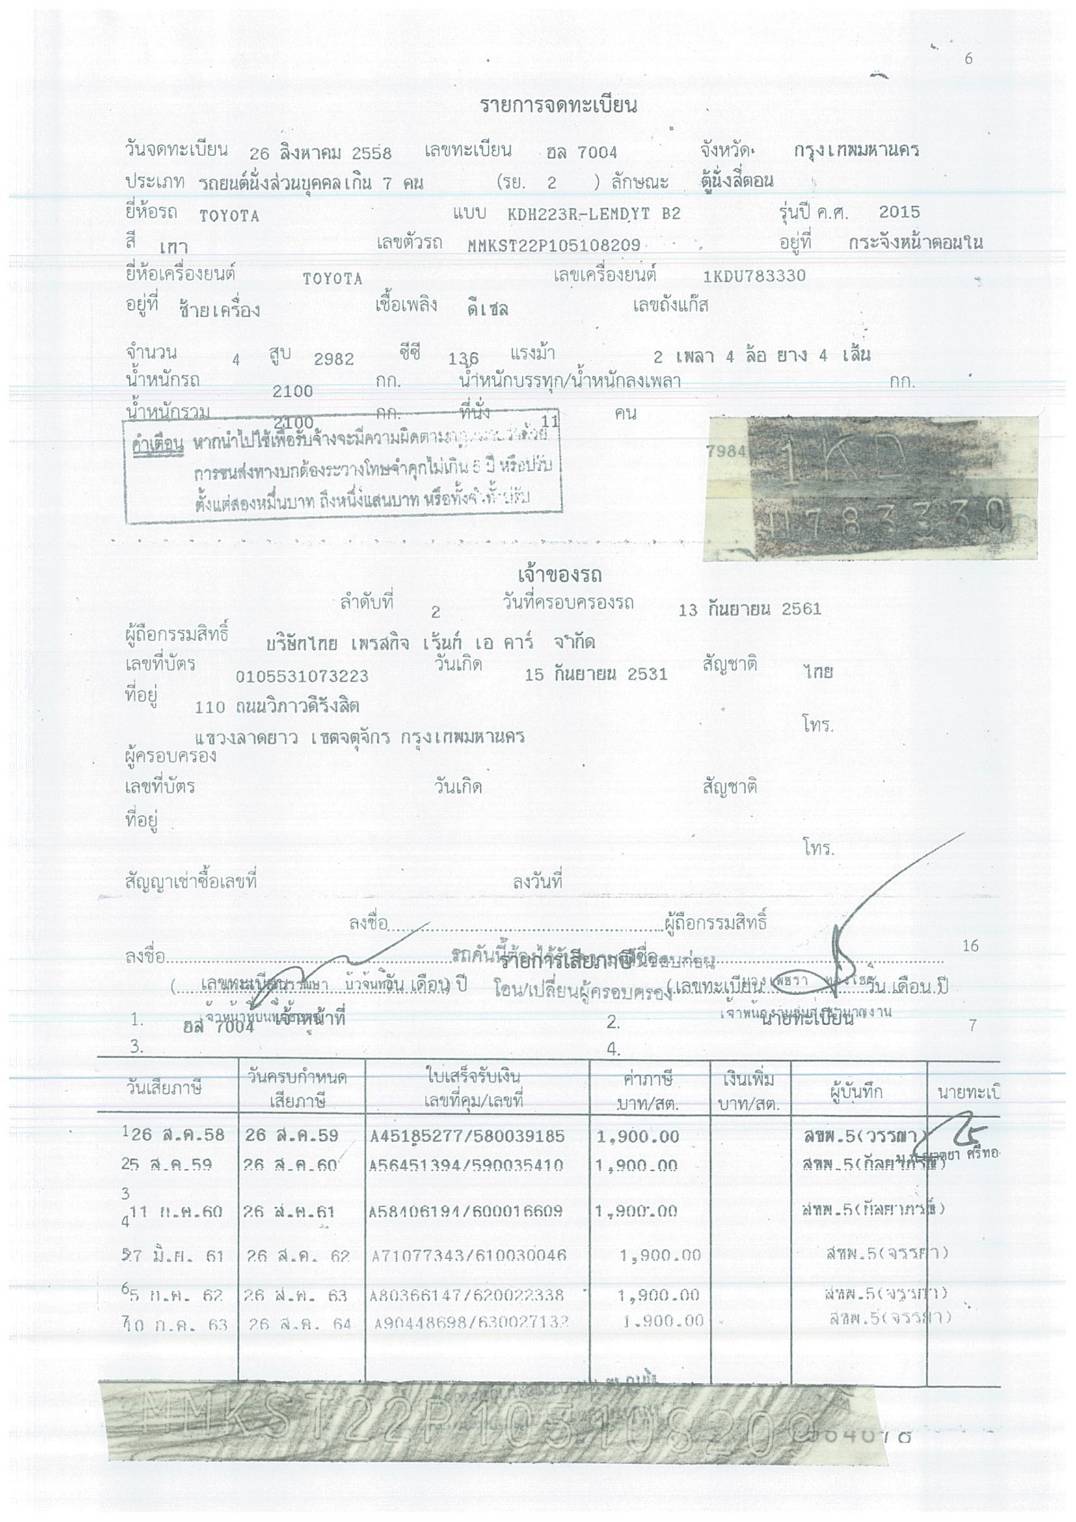 6
รายการจดทะเบียน
วันจดทะเบียน 26 สิงหาคม 2558 เลขทะเบียน ฮล 7004 จังหวัด กรุงเทพมหานคร
ประเภท รถยนต์นั่งส่วนบุคคลเกิน 7 คน (รย. 2 ) ลักษณะ ตู้นั่งสี่ตอน
ยี่ห้อรถ TOYOTA แบบ KDH223R-LEMDYT B2 รุ่นปี ค.ศ. 2015
สี เทา เลขตัวรถ MMKST22P105108209 อยู่ที่ กระจังหน้าตอนใน
ยี่ห้อเครื่องยนต์ TOYOTA เลขเครื่องยนต์ 1KDU783330
อยู่ที่ ซ้ายเครื่อง เชื้อเพลิง ดีเซล เลขถังแก๊ส
จำนวน 4 สูบ 2982 ซีซี 136 แรงม้า 2 เพลา 4 ล้อ ยาง 4 เส้น
น้ำหนักรถ 2100 กก. น้ำหนักบรรทุก/น้ำหนักลงเพลา กก.
น้ำหนักรวม 2100 กก. ที่นั่ง 11 คน
คำเตือน หากนำไปใช้เพื่อรับจ้างจะมีความผิดตาม
การขนส่งทางบกต้องระวางโทษจำคุกไม่เกิน 5 ปี หรือปรับ
ตั้งแต่สองหมื่นบาท ถึงหนึ่งแสนบาท หรือทั้งจำทั้งปรับ
7984
1KD
U783330
เจ้าของรถ
ลำดับที่ 2 วันที่ครอบครองรถ 13 กันยายน 2561
ผู้ถือกรรมสิทธิ์ บริษัทไทย เพรสทิจ เร้นท์ เอ คาร์ จำกัด
เลขที่บัตร 0105531073223 วันเกิด 15 กันยายน 2531 สัญชาติ ไทย
ที่อยู่ 110 ถนนวิภาวดีรังสิต
แขวงลาดยาว เขตจตุจักร กรุงเทพมหานคร โทร.
ผู้ครอบครอง
เลขที่บัตร วันเกิด สัญชาติ
ที่อยู่
โทร.
สัญญาเช่าซื้อเลขที่ ลงวันที่
ลงชื่อ ผู้ถือกรรมสิทธิ์
ลงชื่อ รายการเสียภาษี 16
เลขทะเบียน วัน เดือน ปี โอน/เปลี่ยนผู้ครอบครอง เลขทะเบียน วัน เดือน ปี
1. ฮล 7004 เจ้าหน้าที่ 2. นายทะเบียน 7
3. 4.
วันเสียภาษี วันครบกำหนดเสียภาษี ใบเสร็จรับเงิน เลขที่คุม/เลขที่ ค่าภาษี บาท/สต. เงินเพิ่ม บาท/สต. ผู้บันทึก นายทะเบี
1 26 ส.ค.58 26 ส.ค.59 A45185277/580039185 1,900.00 สขพ.5(วรรณา)
25 ส.ค.59 26 ส.ค.60 A56451394/590035410 1,900.00 สขพ.5(กัลยาภรณ์)
3
4 11 ก.ค.60 26 ส.ค.61 A58106194/600016609 1,900.00 สขพ.5(กัลยาภรณ์)
27 มิ.ย. 61 26 ส.ค. 62 A71077343/610030046 1,900.00 สขพ.5(จรรยา)
6 5 ก.ค. 62 26 ส.ค. 63 A80366147/620022338 1,900.00 สขพ.5(จรรยา)
10 ก.ค. 63 26 ส.ค. 64 A90448698/630027132 1,900.00 สขพ.5(จรรยา)
MMKST22P105108209